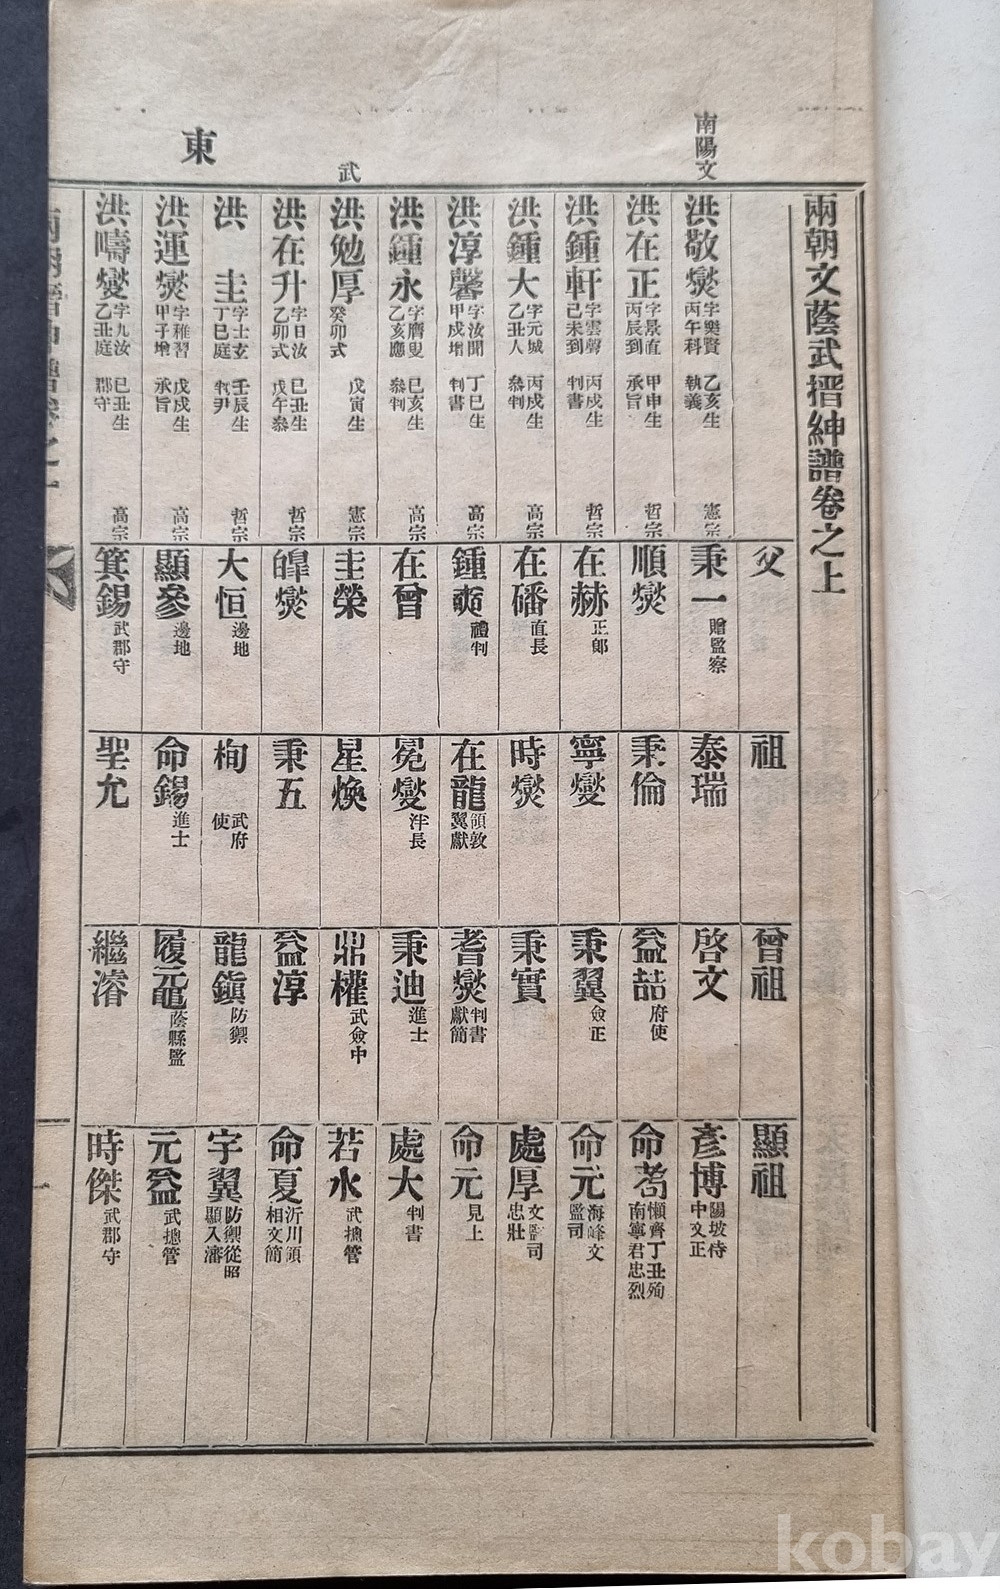 兩朝文蔭武搢紳譜卷之上
父
祖
曾祖
顯祖
南陽文
洪敬爕 字樂賢 丙午科 乙亥生 執義 憲宗
秉一 贈監察
泰瑞
啓文
彥博 陽坡侍中文正
洪在正 字景直 丙辰到 甲申生 承旨 哲宗
順爕
秉倫
益喆 府使
命耉 懶齋丁丑殉南寧君忠烈
洪鍾軒 字雲馨 己未到 丙戌生 判書 哲宗
在赫 正郞
寧燮
秉翼 僉正
命元 海峰文監司
洪鍾大 字元城 乙丑人 丙戌生 叅判 高宗
在磻 直長
時爕
秉實
處厚 文監司忠壯
洪淳馨 字汝聞 甲戌增 丁巳生 判書 高宗
鍾奭 禮判
在龍 領敦翼獻
耆爕 判書獻簡
命元 見上
洪鍾永 字膺叟 乙亥應 己亥生 叅判 高宗
在曾
冕燮 泮長
秉迪 進士
處大 判書
武
洪勉厚 癸卯式 戊寅生 憲宗
圭榮
星煥
鼎權 武僉中
若水 武摠管
洪在升 字日汝 乙卯式 己丑生 戊午叅 哲宗
皥爕
秉五
益淳
命夏 沂川領相文簡
洪圭 字士玄 丁巳庭 壬辰生 判尹 哲宗
大恒 邊地
栒 武府使
龍鎭 防禦
宇翼 防禦從昭顯入瀋
東
洪運爕 字稚習 甲子增 戊戌生 承旨 高宗
顯參 邊地
命錫 進士
履元 蔭縣監
元益 武摠管
洪疇燮 字九汝 乙丑庭 己丑生 郡守 高宗
箕錫 武郡守
聖允
繼濬
時傑 武郡守
一
kobay